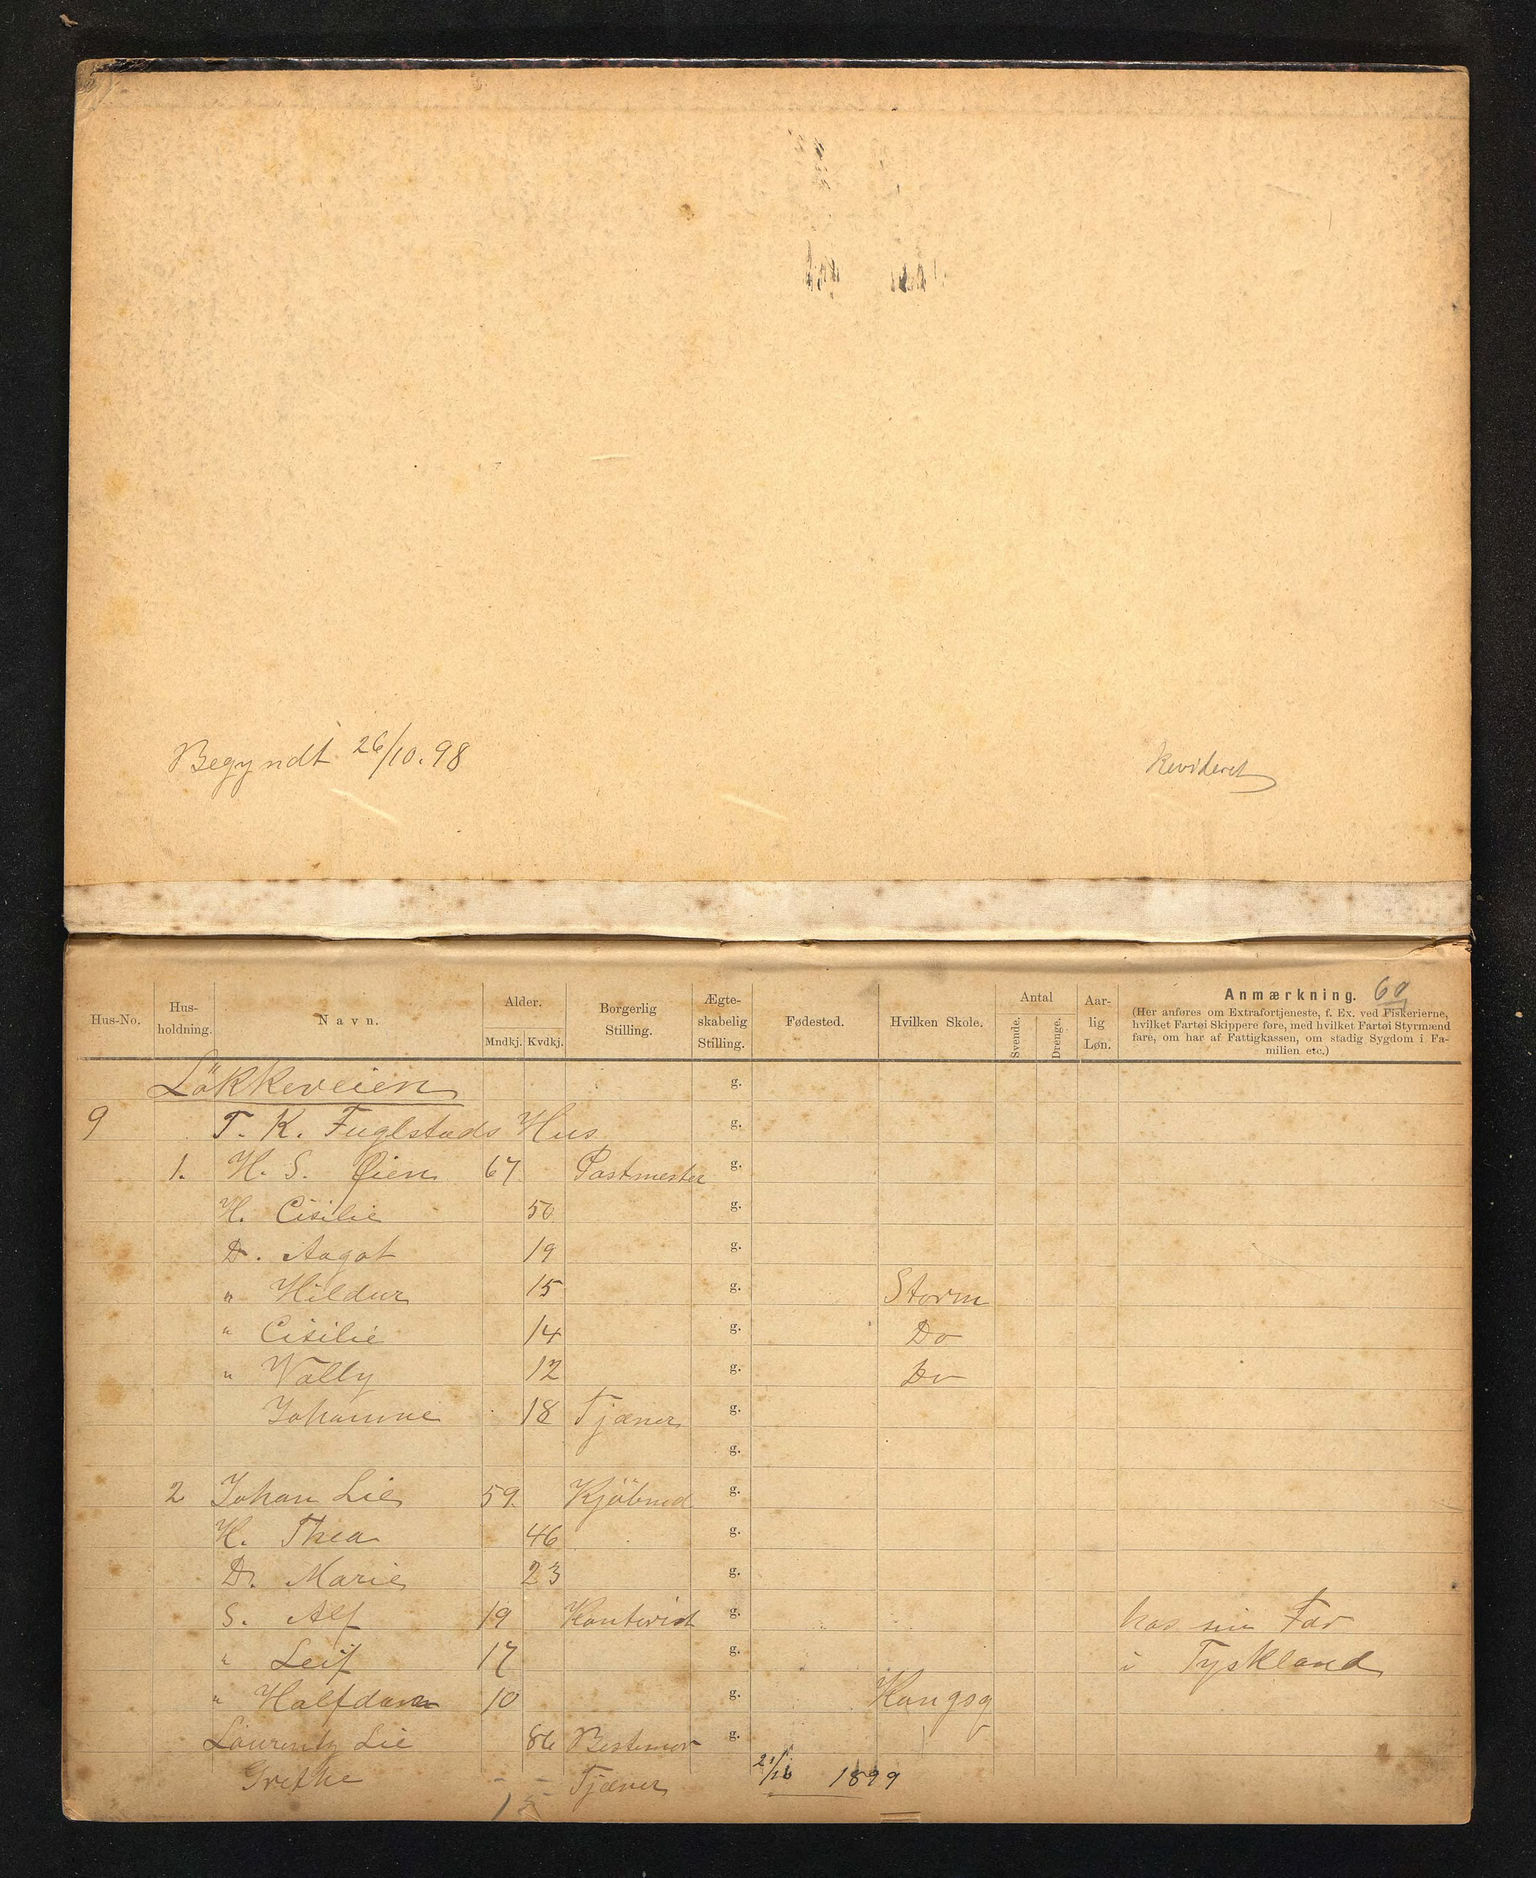 Begyndt 26/10.98
Revideret
Hus-No. Hus-holdning. Navn. Alder. Mndkj. Kvdkj. Borgerlig Stilling. Ægte-skabelig Stilling. Fødested. Hvilken Skole. Antal Svende. Drenge. Aar-lig Løn. Anmærkning. 60
(Her anføres om Extrafortjeneste, f. Ex. ved Fiskerierne,
hvilket Fartøi Skippere føre, med hvilket Fartøi Styrmænd
fare, om har af Fattigkassen, om stadig Sygdom i Fa-
milien etc.)
Lökkeveien g.
9 T. K. Fuglstads Hus g.
1. H. S. Øien 67 Postmester g.
H. Cisilie 50 g.
D. Aagot 19 g.
" Hildur 15 g. Storm
" Cisilie 14 g. Do
" Wally 12 g. Do
Johanne 18 Tjener g.
g.
2 Johan Lie 59 Kjöbmd g.
H. Thea 46 g.
D. Marie 23 g.
S. Alf 19 Kontorist g. hos sin Far
" Leif 17 g. i Tyskland
" Halfdan 10 g. Kongsg
Laurentz Lie 86 Bestemor g.
Grethe - - Tjener 1899
15